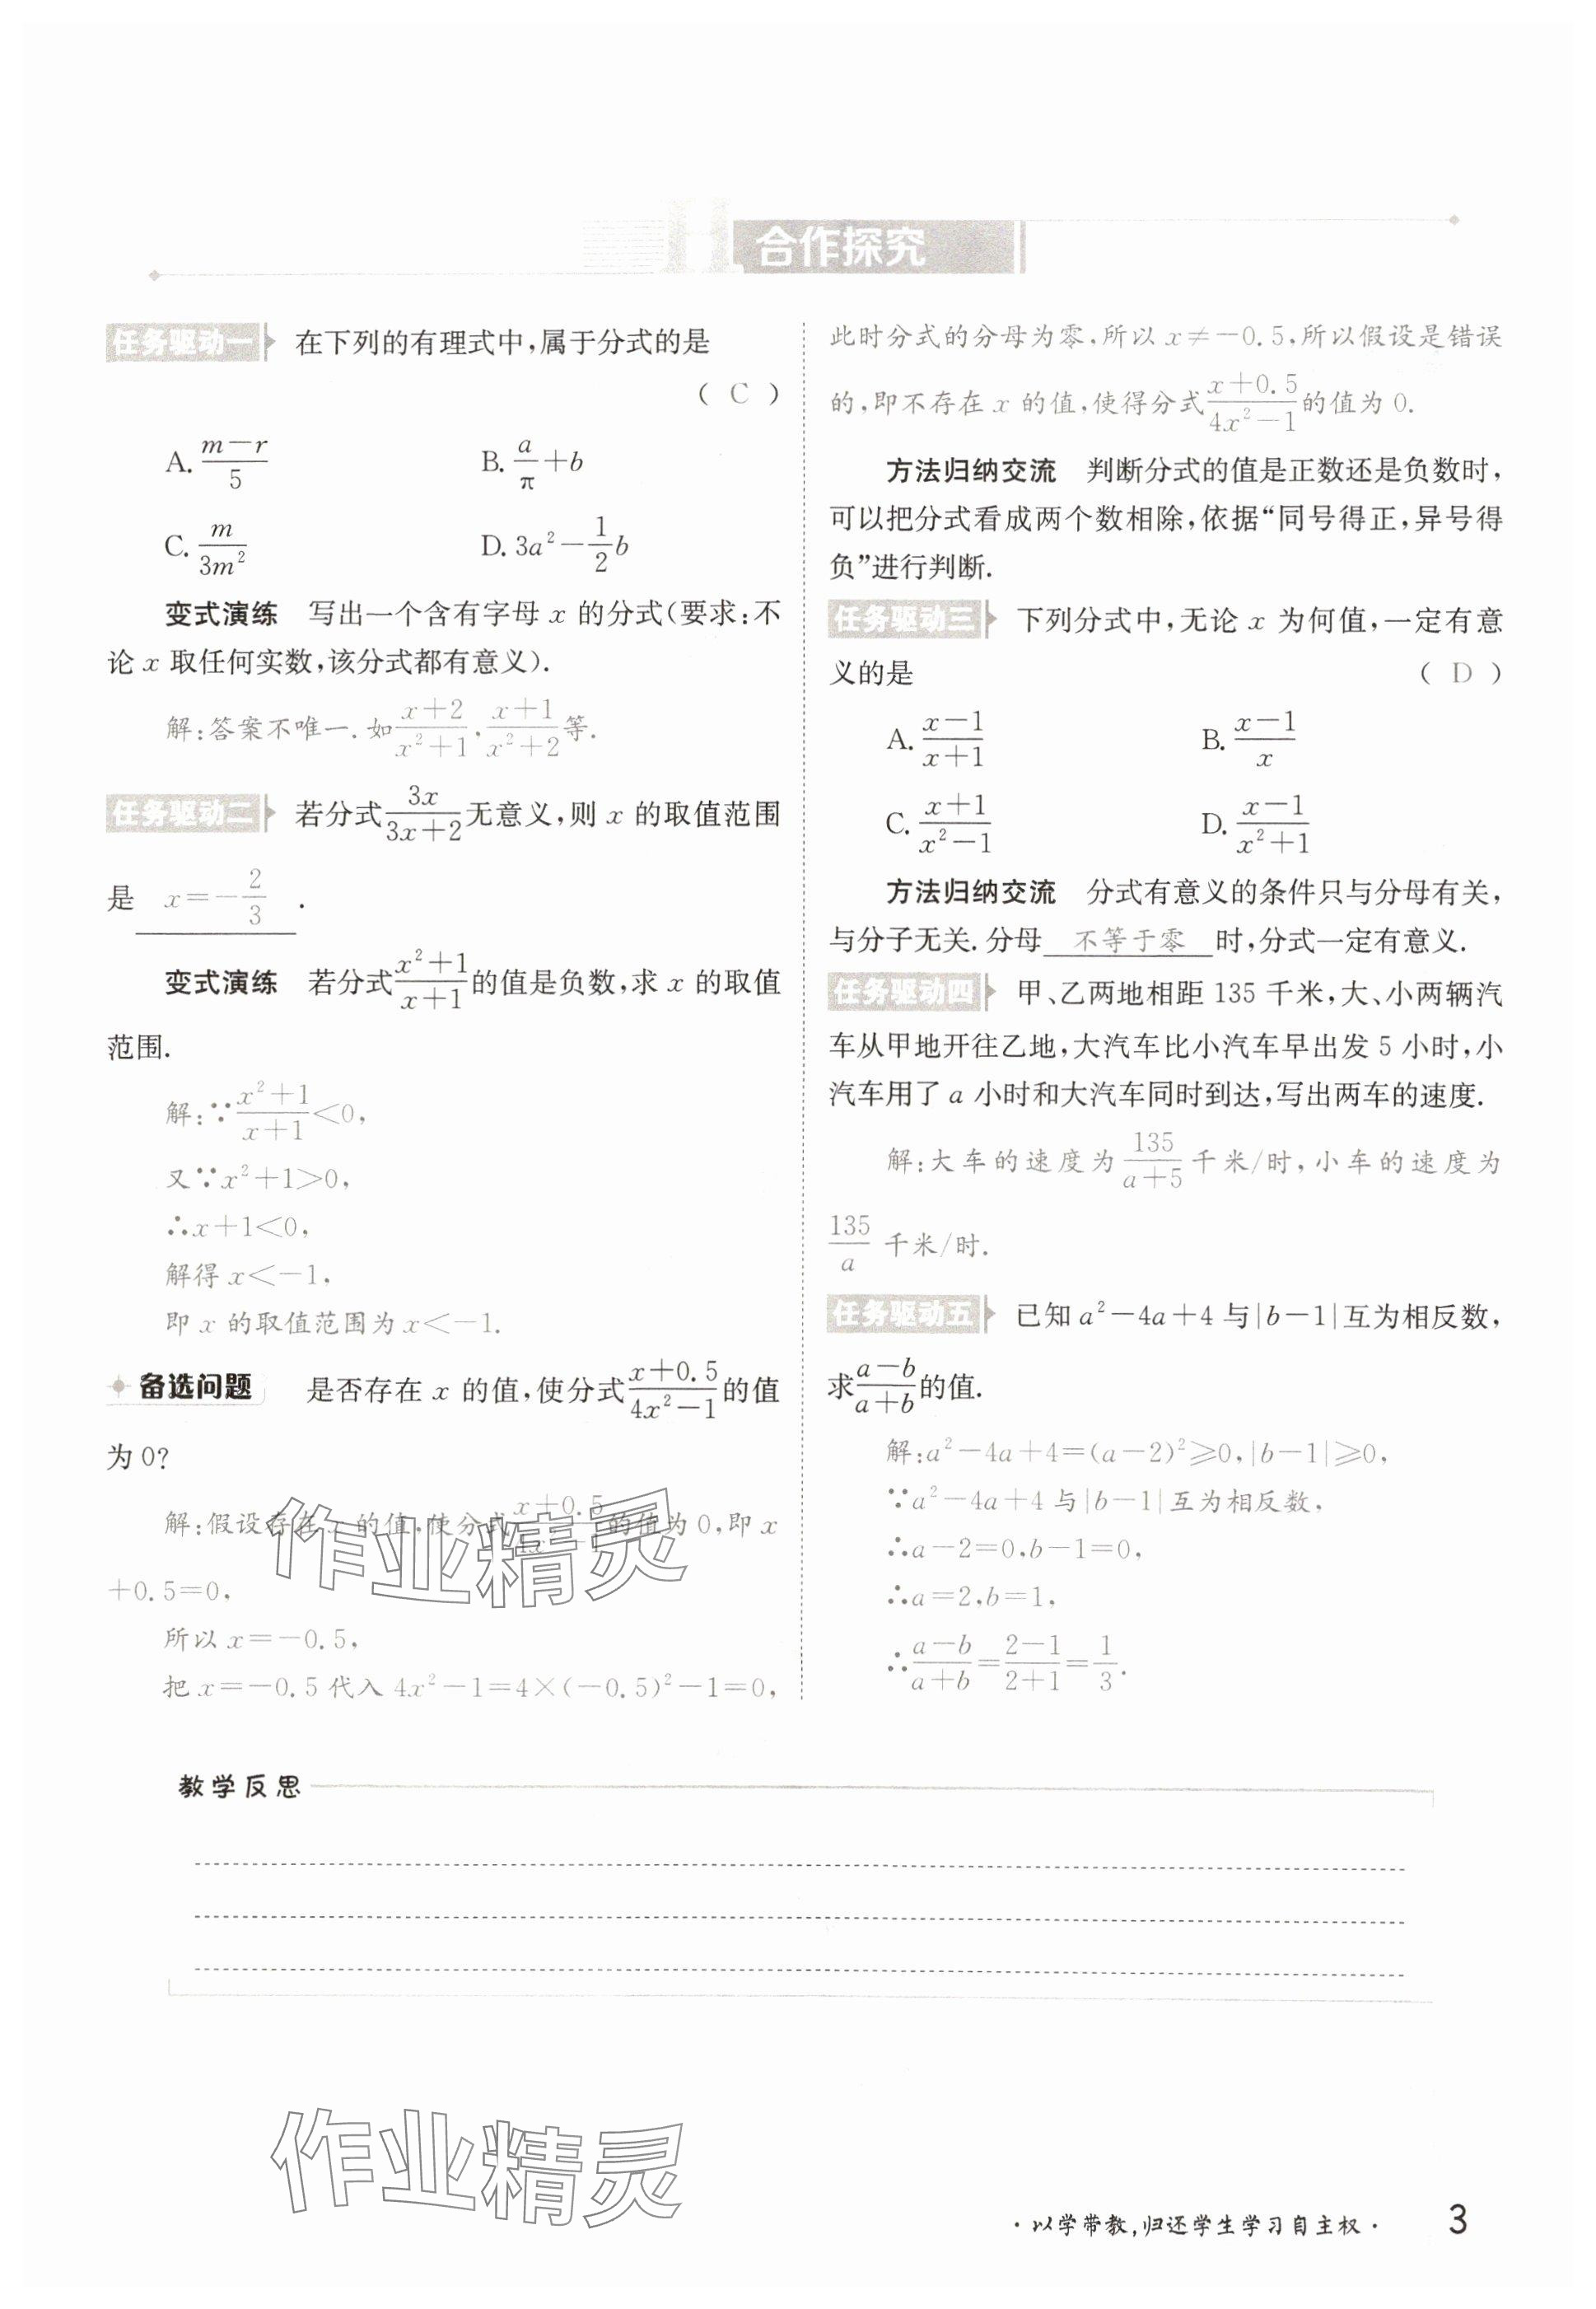 合作探究
任务驱动一 在下列的有理式中,属于分式的是
( C )
A. \frac{m-r}{5} B. \frac{a}{π}+b
C. \frac{m}{3m²} D. 3a²-\frac{1}{2}b
变式演练 写出一个含有字母 x 的分式(要求:不
论 x 取任何实数,该分式都有意义).
解:答案不唯一. 如\frac{x+2}{x²+1},\frac{x+1}{x²+2}等.
任务驱动二 若分式\frac{3x}{3x+2}无意义,则 x 的取值范围
是 x=-\frac{2}{3} .
变式演练 若分式\frac{x²+1}{x+1}的值是负数,求 x 的取值
范围.
解:∵\frac{x²+1}{x+1}<0,
又∵x²+1>0,
∴x+1<0,
解得 x<-1.
即 x 的取值范围为 x<-1.
备选问题 是否存在 x 的值,使分式\frac{x+0.5}{4x²-1}的值
为 0?
解:假设存在 x 的值,使分式\frac{x+0.5}{4x²-1}的值为 0,即 x
+0.5=0,
所以 x=-0.5,
把 x=-0.5 代入 4x²-1=4×(-0.5)²-1=0,
此时分式的分母为零,所以 x≠-0.5,所以假设是错误
的,即不存在 x 的值,使得分式\frac{x+0.5}{4x²-1}的值为 0.
方法归纳交流 判断分式的值是正数还是负数时,
可以把分式看成两个数相除,依据“同号得正,异号得
负”进行判断.
任务驱动三 下列分式中,无论 x 为何值,一定有意
义的是 ( D )
A. \frac{x-1}{x+1} B. \frac{x-1}{x}
C. \frac{x+1}{x²-1} D. \frac{x-1}{x²+1}
方法归纳交流 分式有意义的条件只与分母有关,
与分子无关. 分母 不等于零 时,分式一定有意义.
任务驱动四 甲、乙两地相距 135 千米,大、小两辆汽
车从甲地开往乙地,大汽车比小汽车早出发 5 小时,小
汽车用了 a 小时和大汽车同时到达,写出两车的速度.
解:大车的速度为\frac{135}{a+5}千米/时,小车的速度为
\frac{135}{a} 千米/时.
任务驱动五 已知 a²-4a+4 与|b-1|互为相反数,
求\frac{a-b}{a+b}的值.
解:a²-4a+4=(a-2)²≥0,|b-1|≥0,
∵a²-4a+4 与|b-1|互为相反数,
∴a-2=0,b-1=0,
∴a=2,b=1,
∴\frac{a-b}{a+b}=\frac{2-1}{2+1}=\frac{1}{3}.
作业精灵
教学反思
作业精灵
·以学带教,归还学生学习自主权· 3